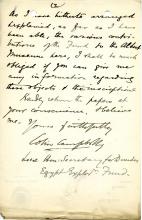 (2
As I have hitherto arranged
explained, as far as I have
been able, the various contri-
butions of the Fund to the Albert
Museum here, I shall be much
obliged if you can give me
any information regarding
these objects & the inscriptions.
Kindly return the papers at
your convenience, & believe
me.
Yours faithfully
John Campbell
Local Hon. Secretary for Dundee
Egypt Explor. Fund.